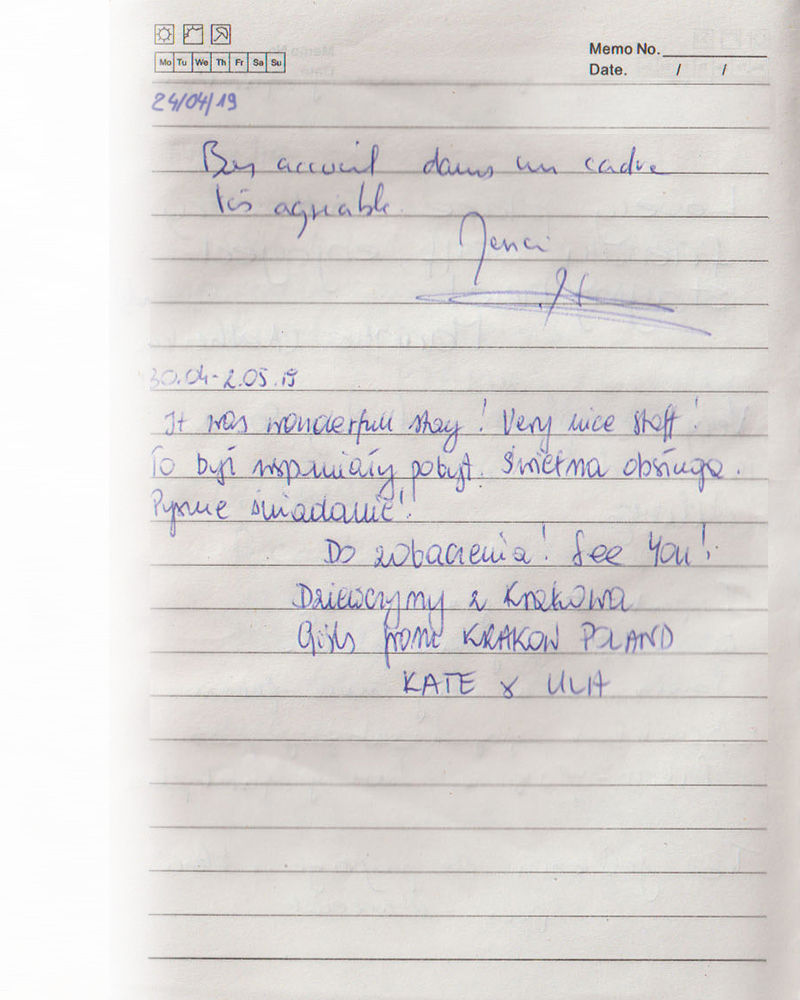 Mo Tu We Th Fr Sa Su
Memo No.
Date. / /
24/04/19
Bon accueil dans un cadre
très agréable.
Merci
30.04-2.05.19
It was wonderfull stay! Very nice staff!
To był wspaniały pobyt. Świetna obsługa.
Pyszne śniadanie!
Do zobaczenia! See You!
Dziewczyny z Krakowa
Girls from KRAKOW POLAND
KATE & ULA